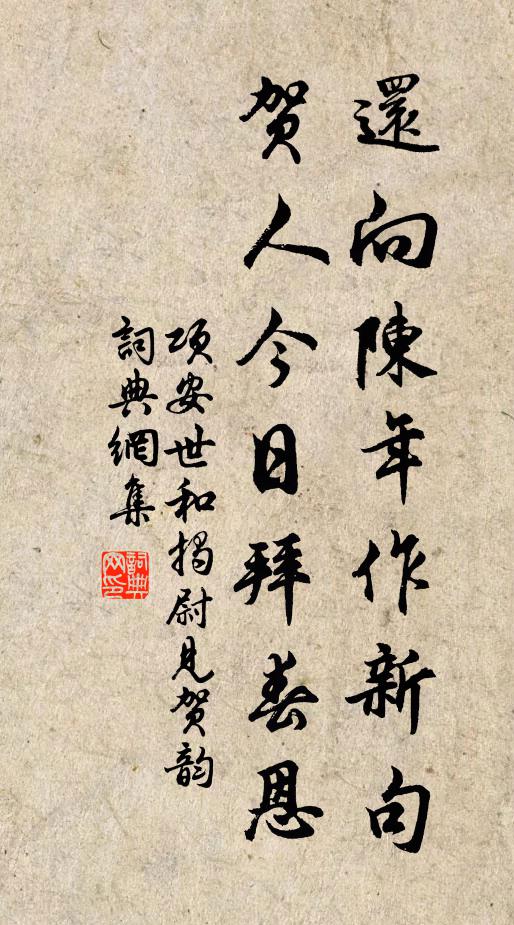 還向陳年作新句
賀人今日拜春恩
項安世和揭尉見賀韵
詞典網集
詞典
网印